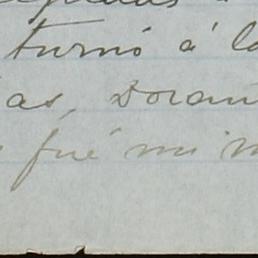 turnó á la
as, Doran
fué mi m